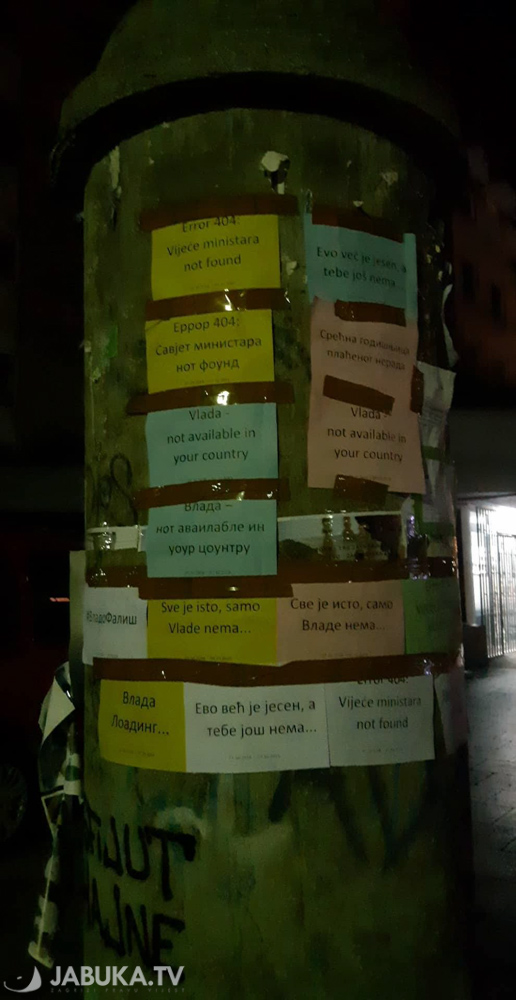 Error 404:
Vijeće ministara
not found
Evo već je jesen, a
tebe još nema...
Еррор 404:
Савјет министара
нот фоунд
Срећна годишњица
плаћеног нерада
Vlada -
not available in
your country
Vlada -
not available in
your country
Влада –
нот аваилабле ин
yоур цоунтрy
#ВладоФалиш
Sve je isto, samo
Vlade nema...
Све је исто, само
Владе нема...
Влада
Лоадинг...
Ево већ је јесен, а
тебе још нема...
Error 404:
Vijeće ministara
not found
JABUKA.TV